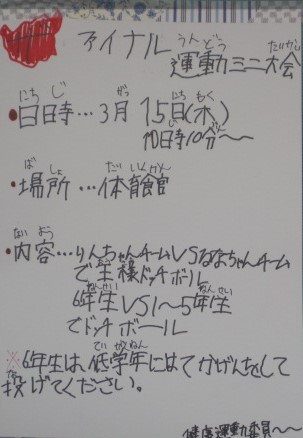 ファイナル
うんどう たいかい
運動ミニ大会
にちじ がつ にち もく
•日時…3月 15日(木)
じ ぷん
10時10分〜
ばしょ たいいくかん
•場所…体育館
ないよう
•内容…りんちゃんチームVSななちゃんチーム
で王様ドッチボール
ねんせい ねんせい
6年生VS1〜5年生
でドッチボール
ていがくねん
※6年生は、低学年にはてかげんをして
な
投げてください。
健康運動委員〜